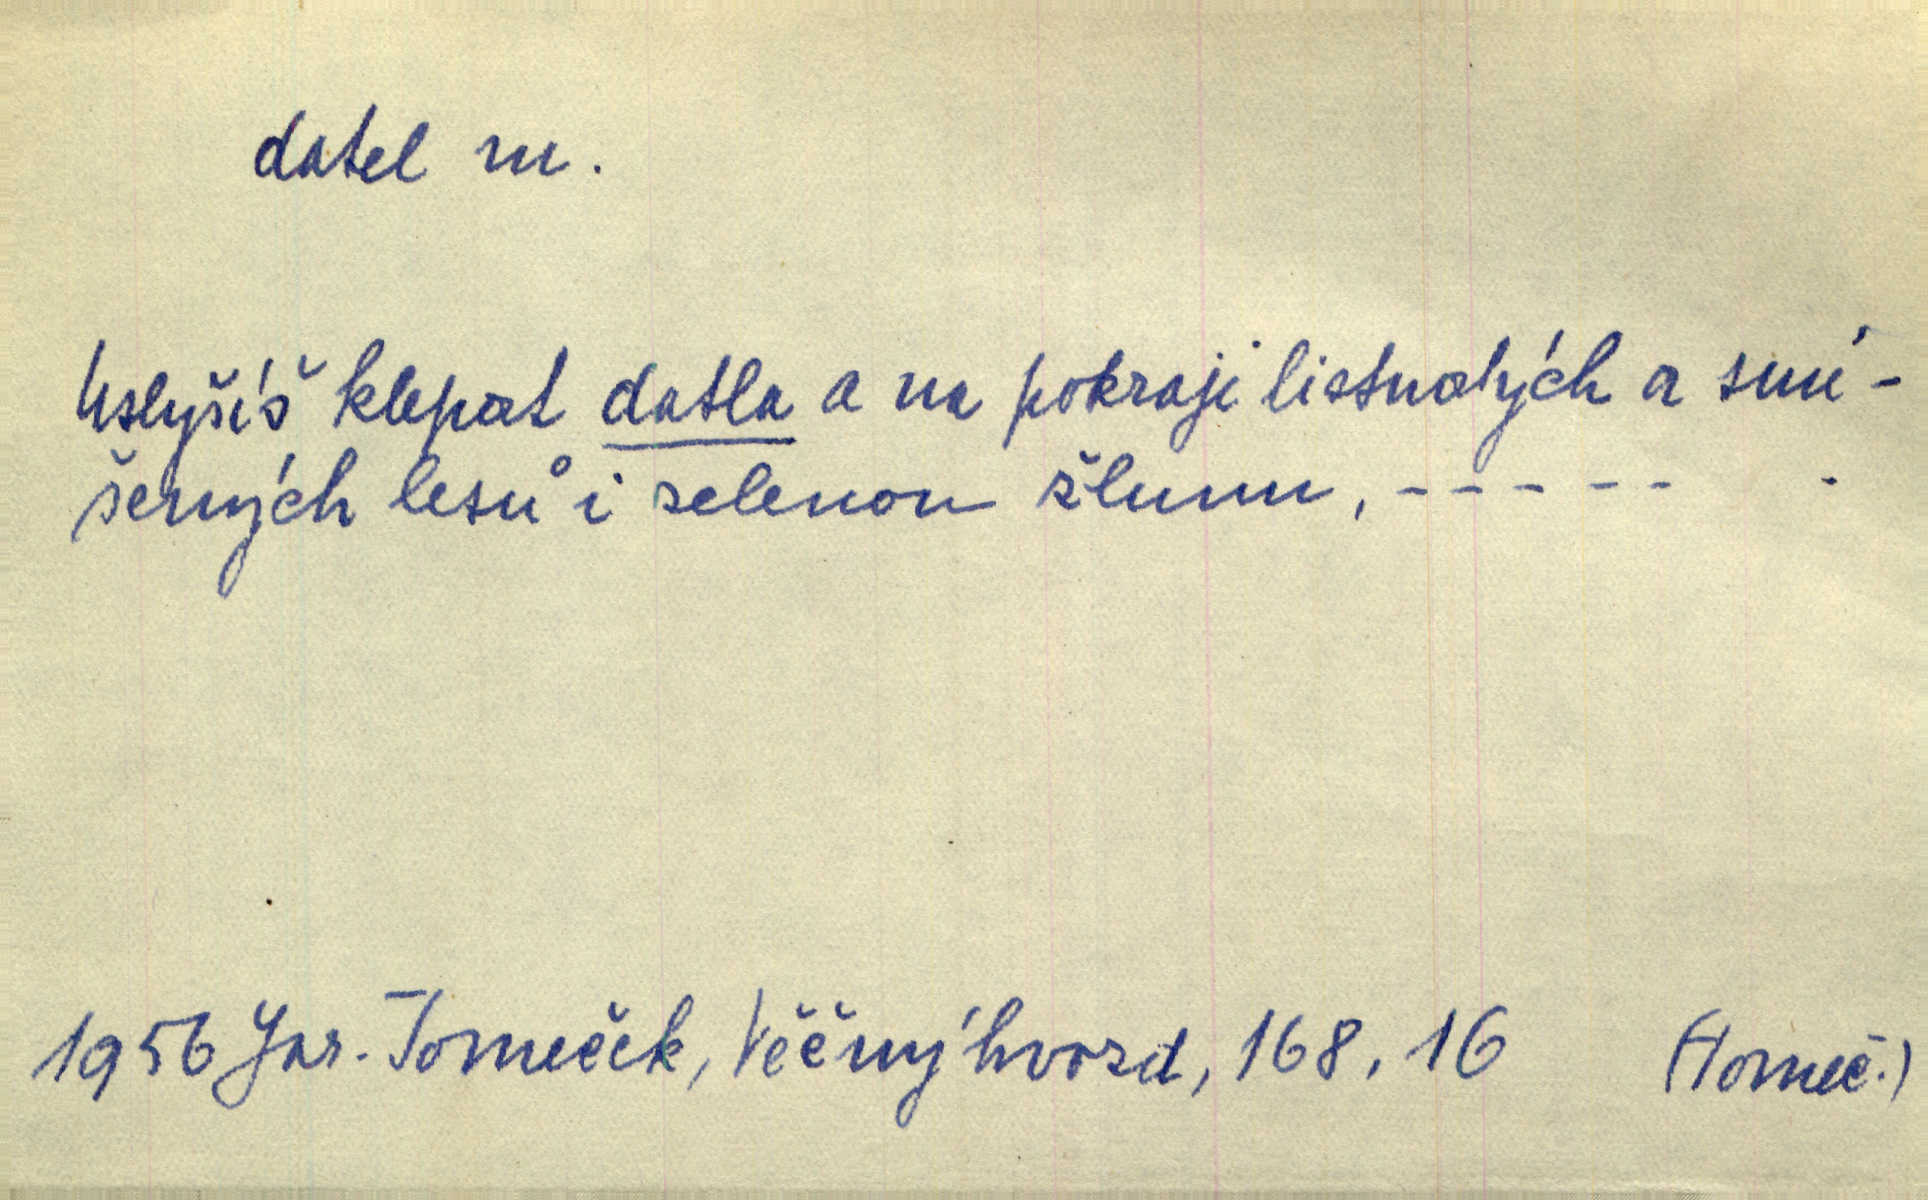 datel m.
Uslyšíš klepat datla a na pokraji listnatých a smí-
šených lesů i zelenou žlunu, - - - - - .
1956 Jar. Tomeček, Věčný hvozd, 168, 16 (Tomeč.)